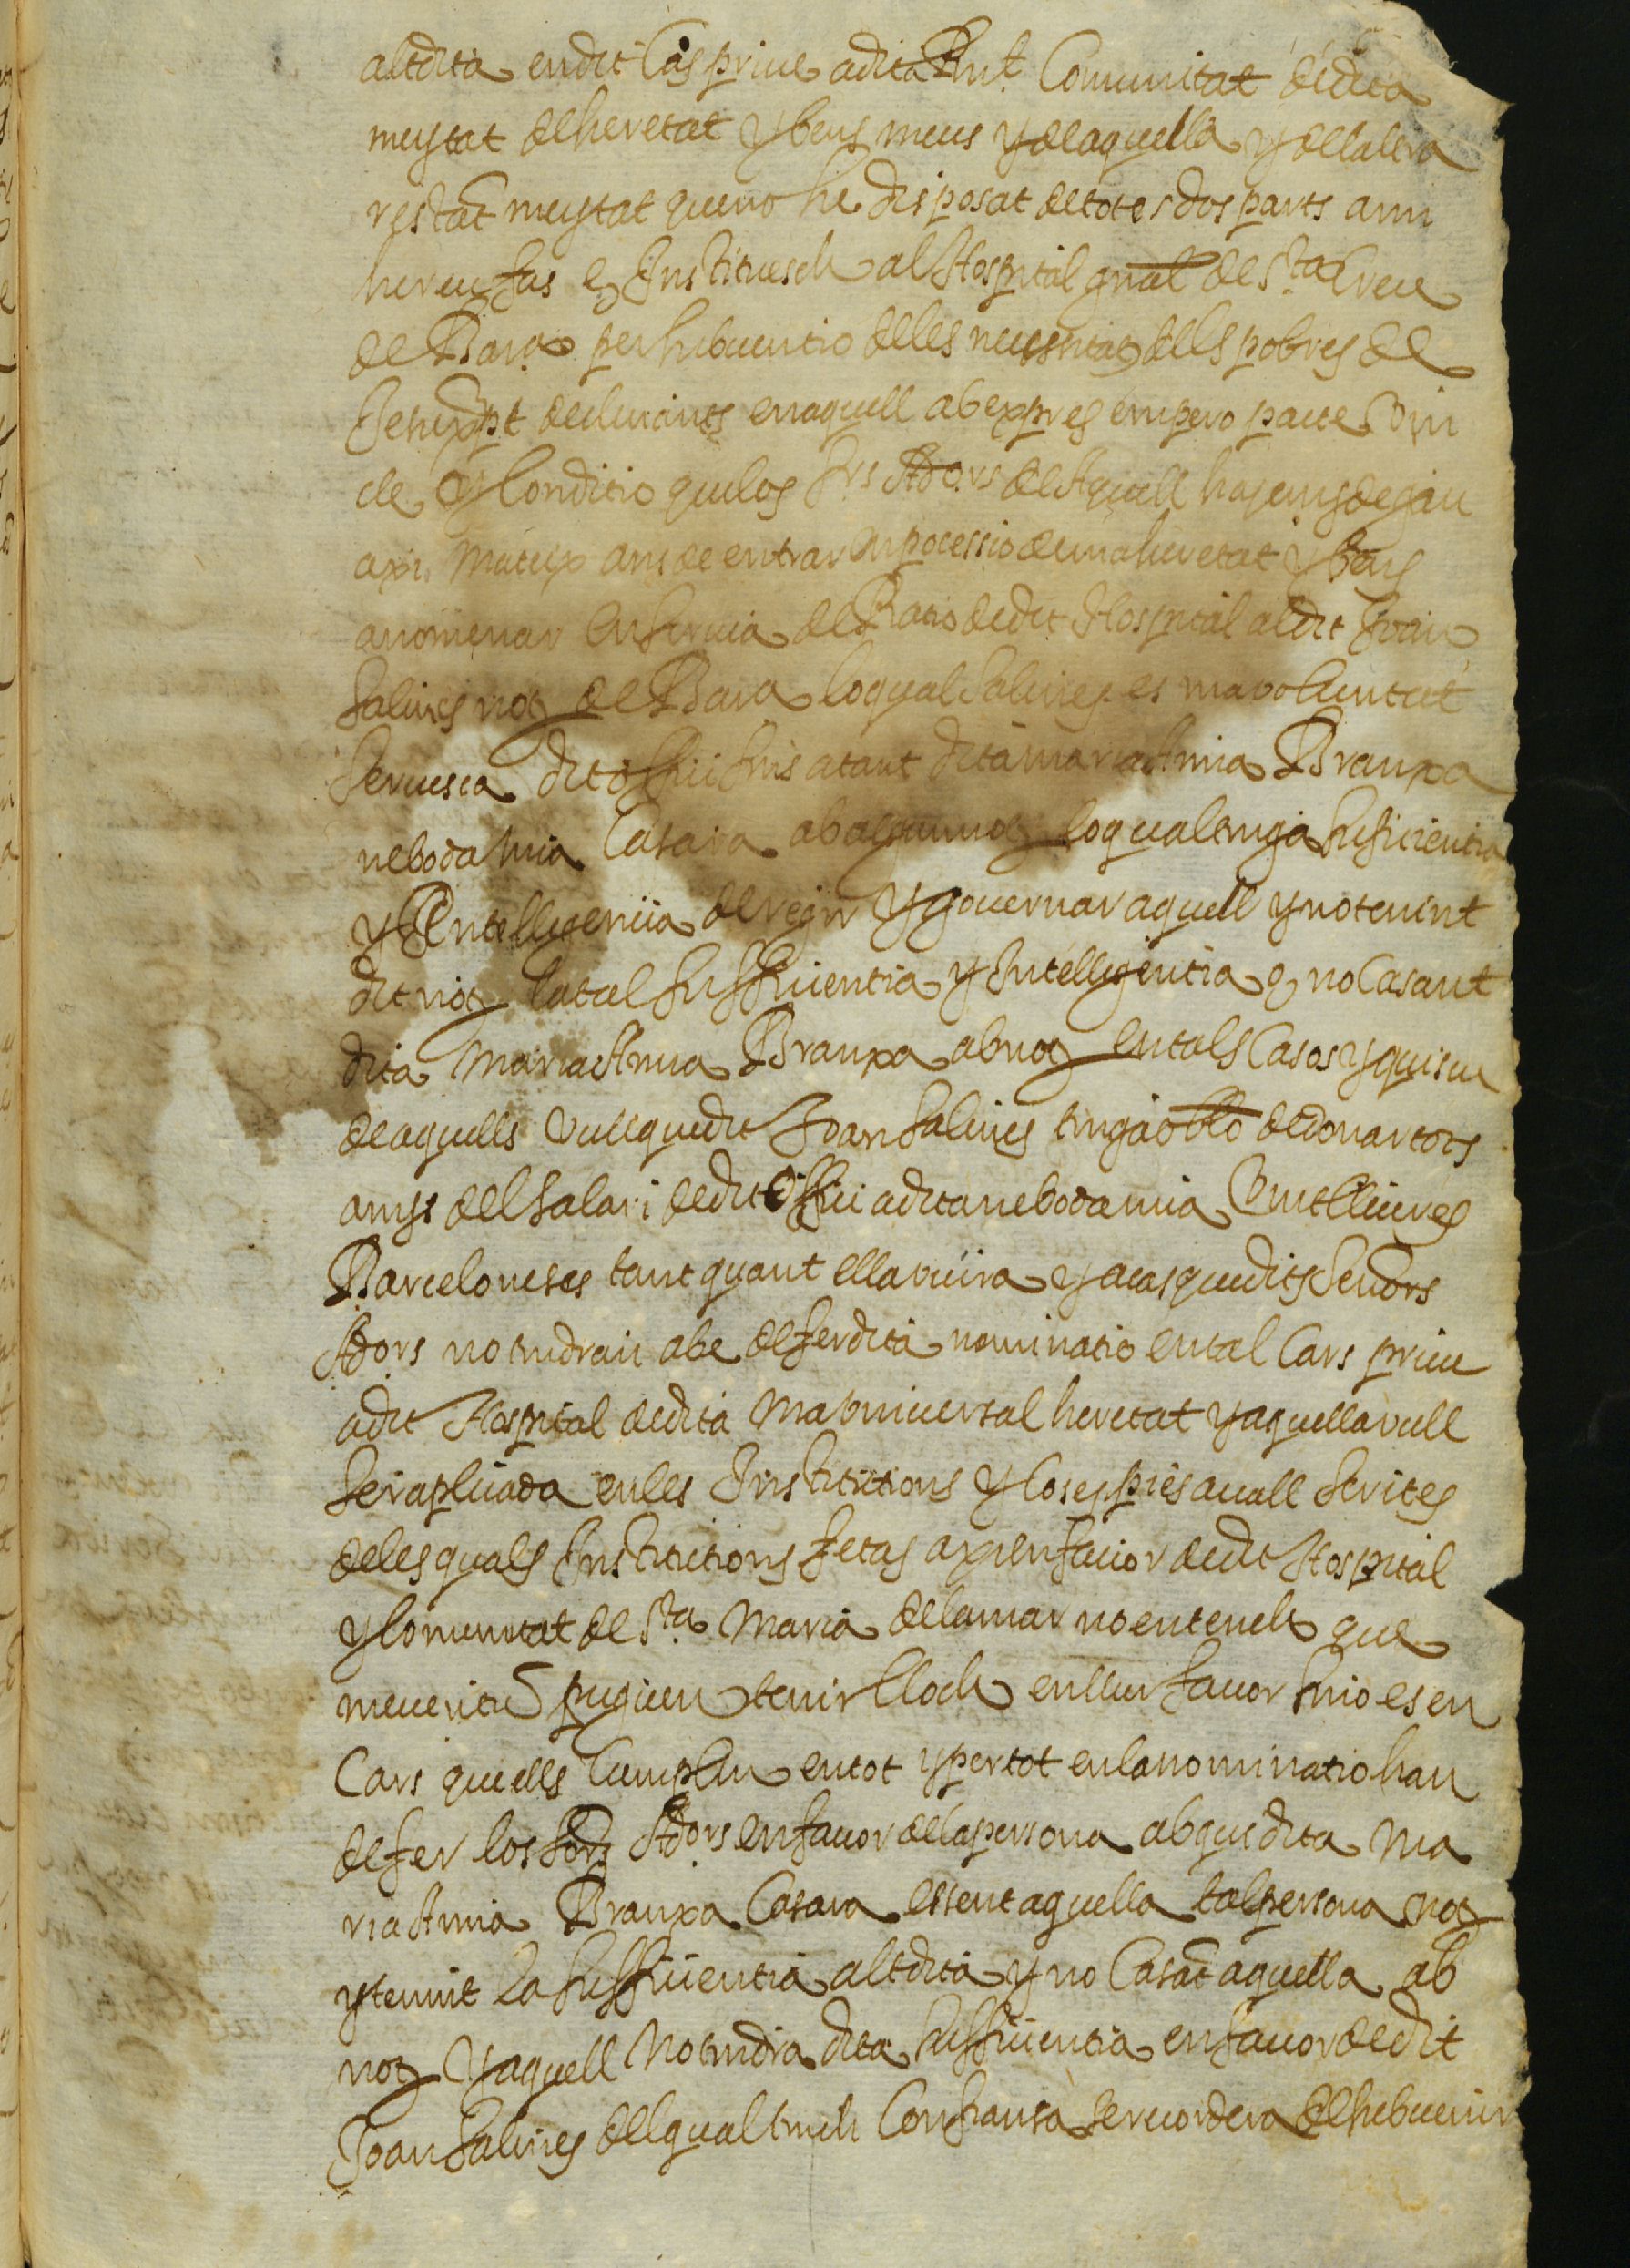 altdita en dit Cas prive a dita Pnt. Comunitat de dita
meytat de heretat y bens meus y de aquella y de la altra
restāt meytat que no he disposat de totes dos parts a mi
hereu fas e Instituesch al Hospital gnāl de Sta Creu
de Bara per subuentio de les necessitats dels pobres de
Jesuxpt declinants en aquell ab expres empero pacte vin
cle y Conditio que los Srs Adors de Aquell hajen y degan
axi Mateix ans de entrar en pocessio de ma heretat y bens
anomenar En Scriua de Ratio de dit Hospital al dit Joan
Salines not de Bara lo qual Salines es ma voluntat
seruesca dit offici fins a tant dita maria Anna Branxa
neboda mia Casara ab algun not lo qual tinga suficientia
y Intelligencia de regir y gouernar aquell y no tenint
dit not la tal sufficientia y Intelligentia o no Casant
dita Maria Anna Branxa ab not en tals Casos y quiscu
de aquells vull que dit Joan Salines tinga obló de donar tots
anys del Salari de dit Offici a dita neboda mia vint lliures
Barceloneses tant quant ella viura y a cas que dits Senors
Adors no tindran a be de fer dita nominatio en tal Cars prive
a dit Hospital de dita Ma vniuersal heretat y aquella vull
ser aplicada en les Institutions y Coses pies auall scrites
de les quals Institutions fetas axi en fauor de dit Hospital
y Comunitat de Sta Maria de la mar no entench que
puguen tenir lloch en llur fauor sino es en
Cars que ells Cumplan en tot y per tot en la nominatio han
de fer los Sors Adors en fauor de la persona ab qui dita Ma
ria Anna Branxa Casara essent aquella tal persona not
y tenint la sufficientia altdita y no Casāt aquella ab
not y aquell No tindra dita sufficientia en fauor de dit
Joan Salines del qual tinch Confiansa se recordera de subuenir